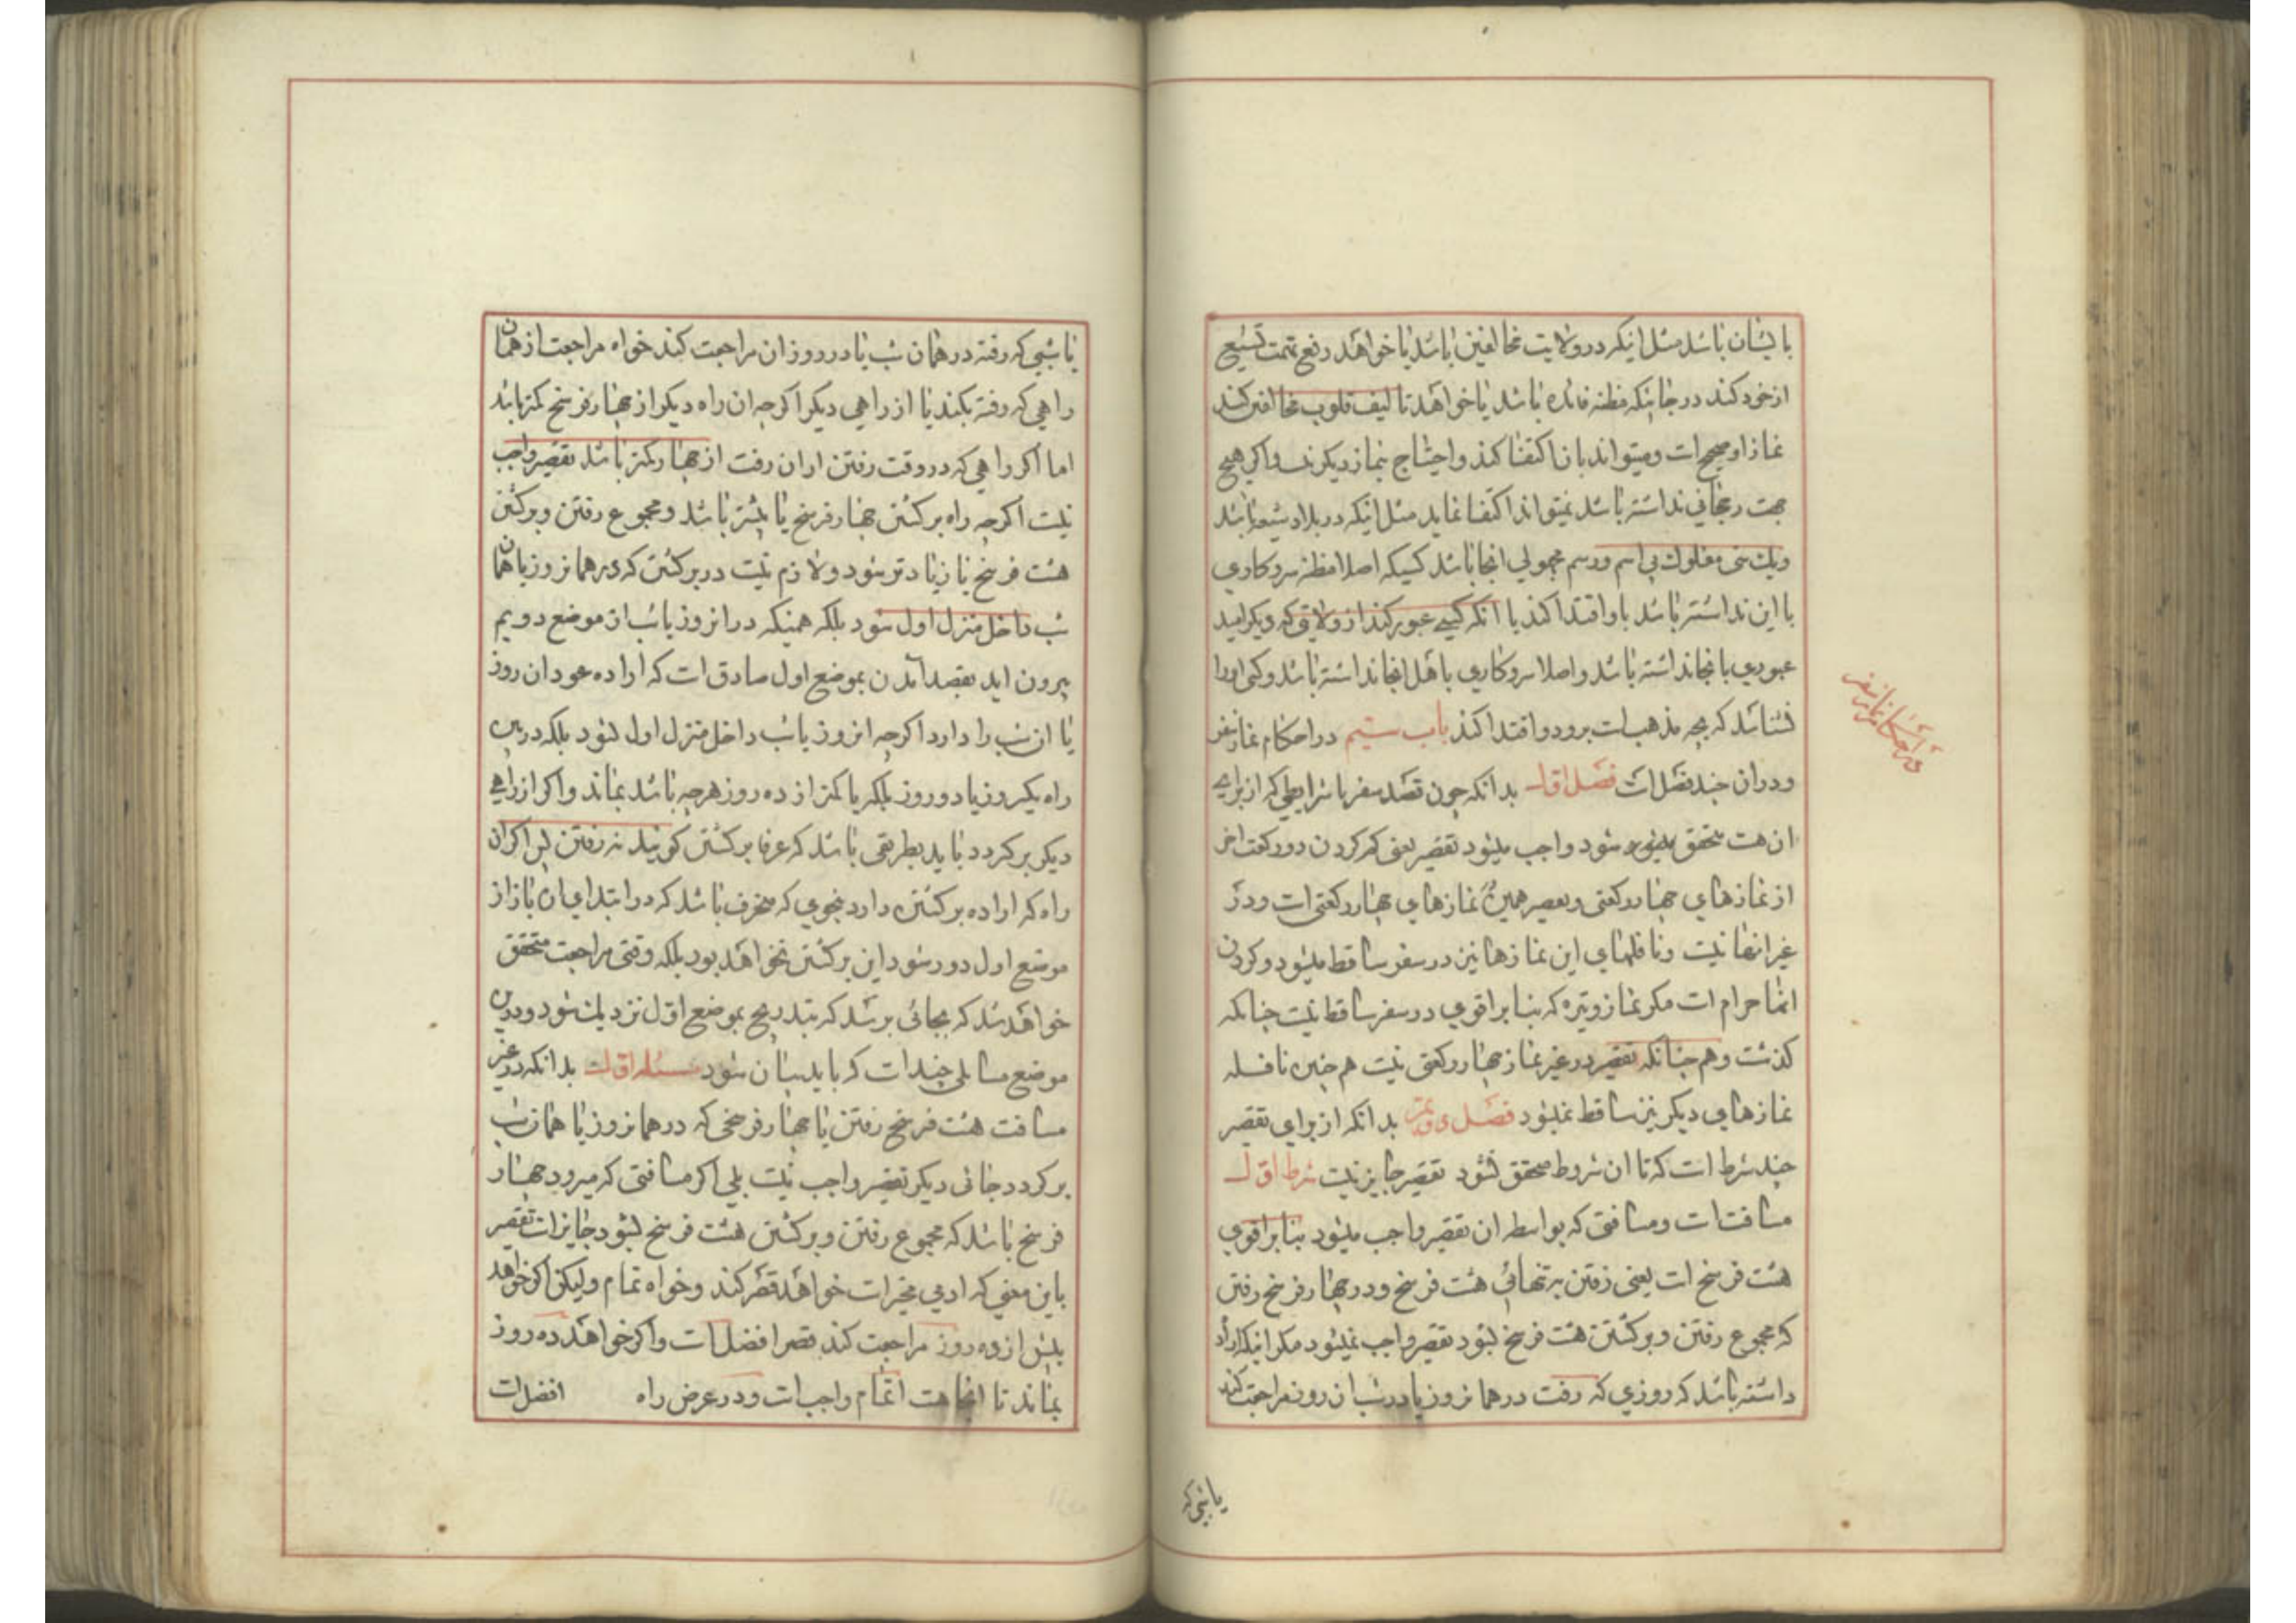 بایشان باشد مثل اینکه در ولایت مخالفین باشد یا خواهد رفع تهمت تشیع
از خود کند در جائیکه مظنه فائده باشد یا خواهد تالیف قلوب مخالفین کند
نماز او صحیح است و میتواند بان اکتفا کند و احتیاج بنماز دیکر نیست و اکر هیچ
جهت رجحانی نداشته باشد نمیتواند اکتفا نماید مثل اینکه در بلاد شیعه باشد
ویک سنی مفلوک بی اسم و رسم مجهولی انجا باشد کسیکه اصلا مظنه سر و کاری
با این نداشته باشد باو اقتدا کند یا انکه کسی عبور کند از ولایتی که دیکر امید
عبوری بانجا نداشته باشد و اصلا سر و کاری باهل انجا نداشته باشد و کسی او را
نشناشد که بچه مذهب است برود و اقتدا کند باب ستیم در احکام نماز سفر
و در ان چند فصل است فصل اول بدانکه چون قصد سفر با شرایطی که از برای
ان هست متحقق میشود شود واجب میشود تقصیر یعنی کم کردن دو رکعت اخر
از نمازهای چهار رکعتی و تقصیر همین نمازهای چهار رکعتی است و در
غیر انها نیست و نافلهای این نمازها نیز در سفر ساقط میشود و کردن
انها حرام است مکر نماز وتیره که بنابر اقوی در سفر ساقط نیست چنانکه
کذشت و هم چنانکه تقصیر در غیر نماز چهار رکعتی نیست هم چنین نافله
نمازهای دیکر نیز ساقط نمیشود فصل دویم بدانکه از برای تقصیر
چند شرط است که تا ان شروط محقق نشود تقصیر جایز نیست شرط اول
مسافتست و مسافتی که بواسطه ان تقصیر واجب میشود بنابر اقوی
هشت فرسخ است یعنی رفتن بتنهائی هشت فرسخ و در چهار فرسخ رفتن
که مجموع رفتن و برکشتن هشت فرسخ شود تقصیر واجب نمیشود مکر اینکه اراده
داشته باشد که روزی که رفت در همانروز یا در شب ان روز مراجعت کند
یا شبی که
در احکام نماز سفر
یا شبی که رفته در همان شب یا در روز ان مراجعت کند خواه مراجعت از همان
راهی که رفته بکند یا از راهی دیکر اکر چه ان راه دیکر از چهار فرسخ کمتر باشد
اما اکر راهی که در وقت رفتن از ان رفت از چهار کمتر باشد تقصیر واجب
نیست اکر چه راه برکشتن چهار فرسخ یا بیشتر باشد و مجموع رفتن و برکشتن
هشت فرسخ یا زیادتر شود و لازم نیست در برکشتن که در همانروز یا همان
شب داخل منزل اول شود بلکه همینکه در انروز یا شب از موضع دویم
بیرون اید بقصد آمدن بموضع اول صادق است که اراده عود ان روز
یا ان شب را دارد اکر چه انروز یا شب داخل منزل اول نشود بلکه در بین
راه یکروز یا دو روز بلکه یا کمتر از ده روز هر چه باشد بماند و اکر از راهی
دیکر برکردد باید بطریقی باشد که عرفا برکشتن کویند نه رفتن پس اکر ان
راه که اراده برکشتن دارد بنحوی که منحرف باشد که در ابتدای ان باز از
موضع اول دور شود این برکشتن نخواهد بود بلکه وقتی مراجعت متحقق
خواهد شد که بجائی برسد که بتدریج بموضع اول نزدیک شود و در این
موضع مسائلی چند است که باید بیان شود مسئله اول بدانکه در غیر
مسافت هشت فرسخ رفتن یا چهار فرسخی که در همانروز یا همان شب
برکردد جائی دیکر تقصیر واجب نیست بلی اکر مسافتی که میرود چهار
فرسخ باشد که مجموع رفتن و برکشتن هشت فرسخ بشود جایز است تقصیر
باین معنی که ادمی مخیر است خواهد قصر کند و خواه تمام ولیکن اکر خواهد
پیش از ده روز مراجعت کند قصر افضل است و اکر خواهد ده روز
بماند تا انجا هست اتمام واجب است و در عرض راه افضل است